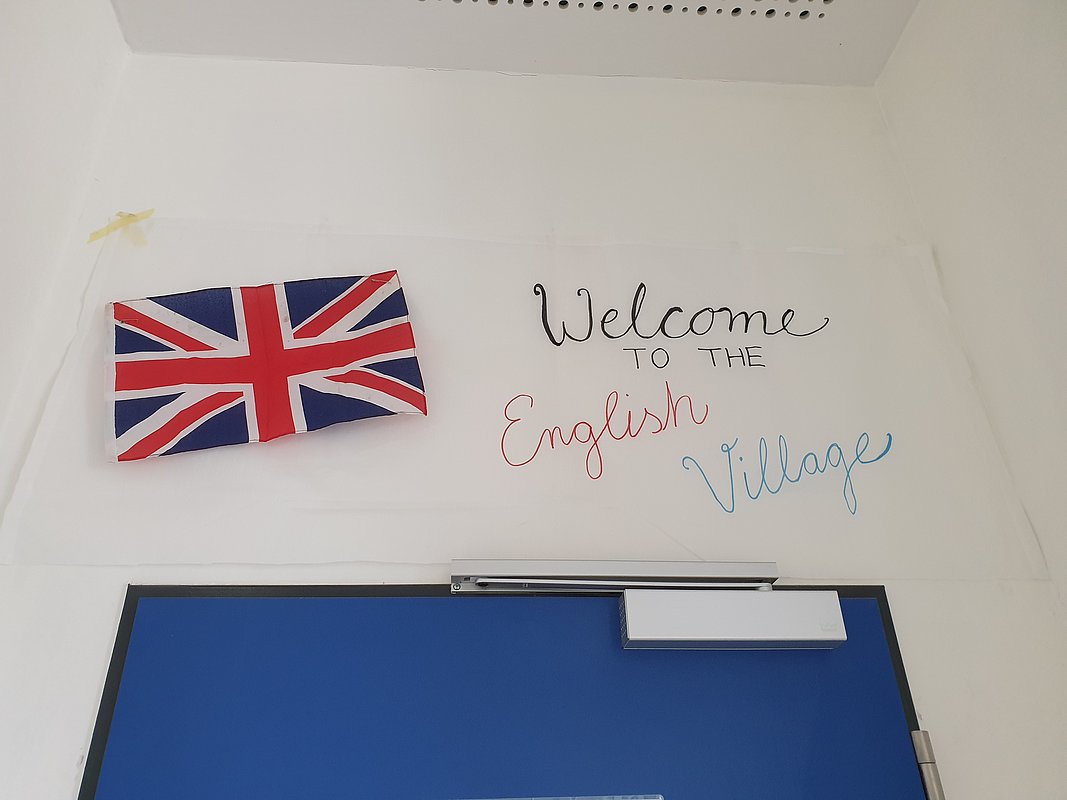 Welcome
TO THE
English
Village